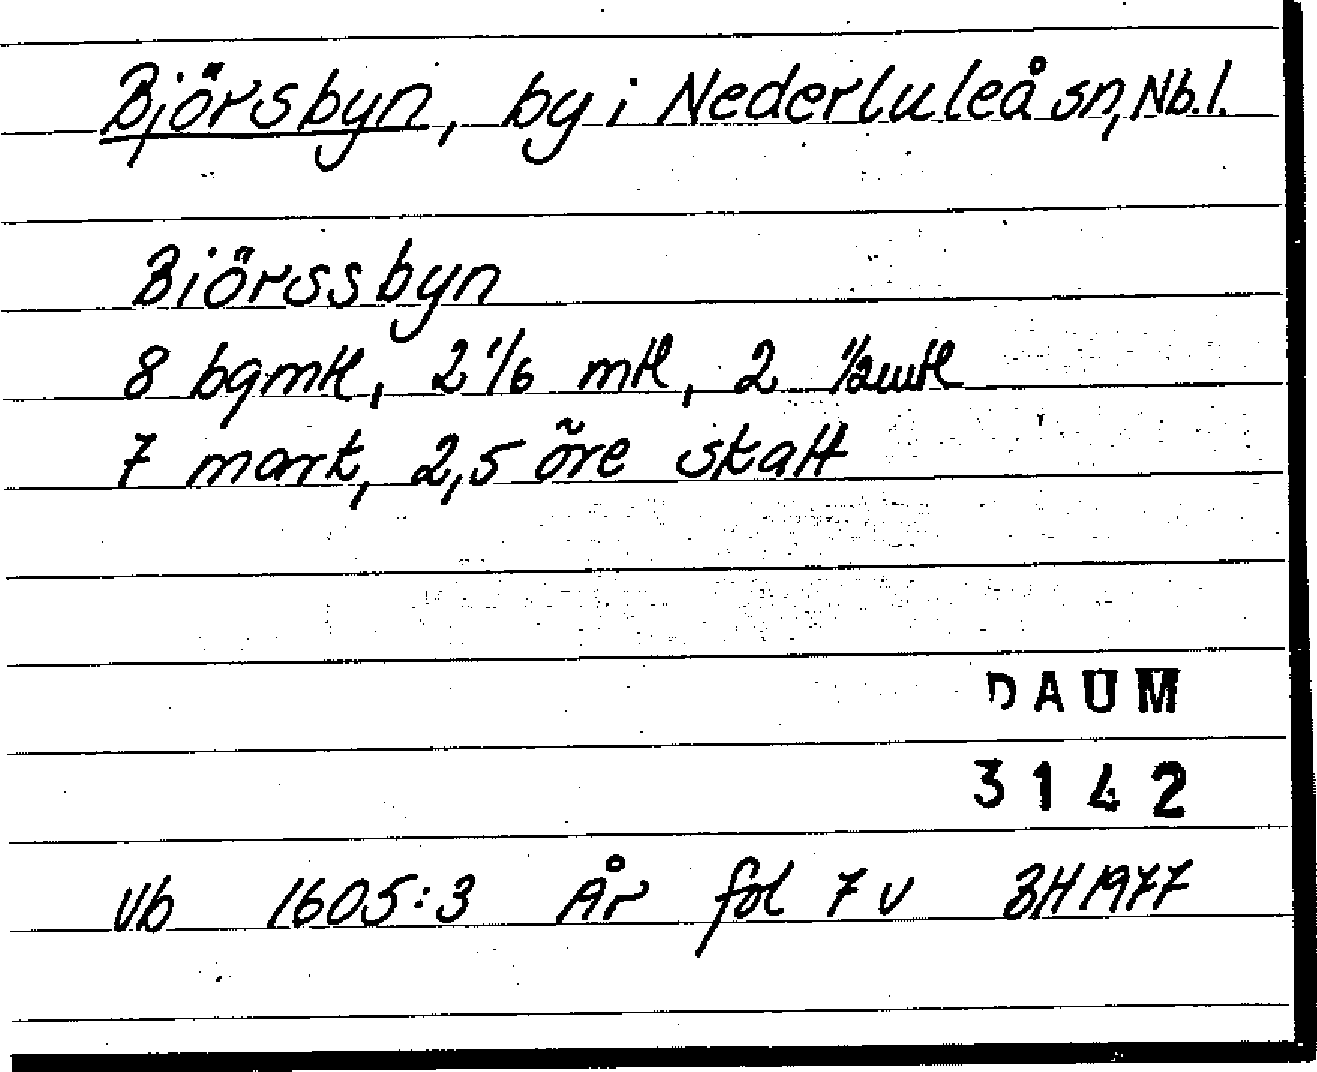 Björsbyn, by i Nederluleå sn, Nb.l.
Biörssbyn
8 bgmtl, 2 1/6 mtl, 2 1/2 mtl
7 mark, 2,5 öre skatt
DAUM
3142
Vb 1605:3 År fol 7 v BH 1977